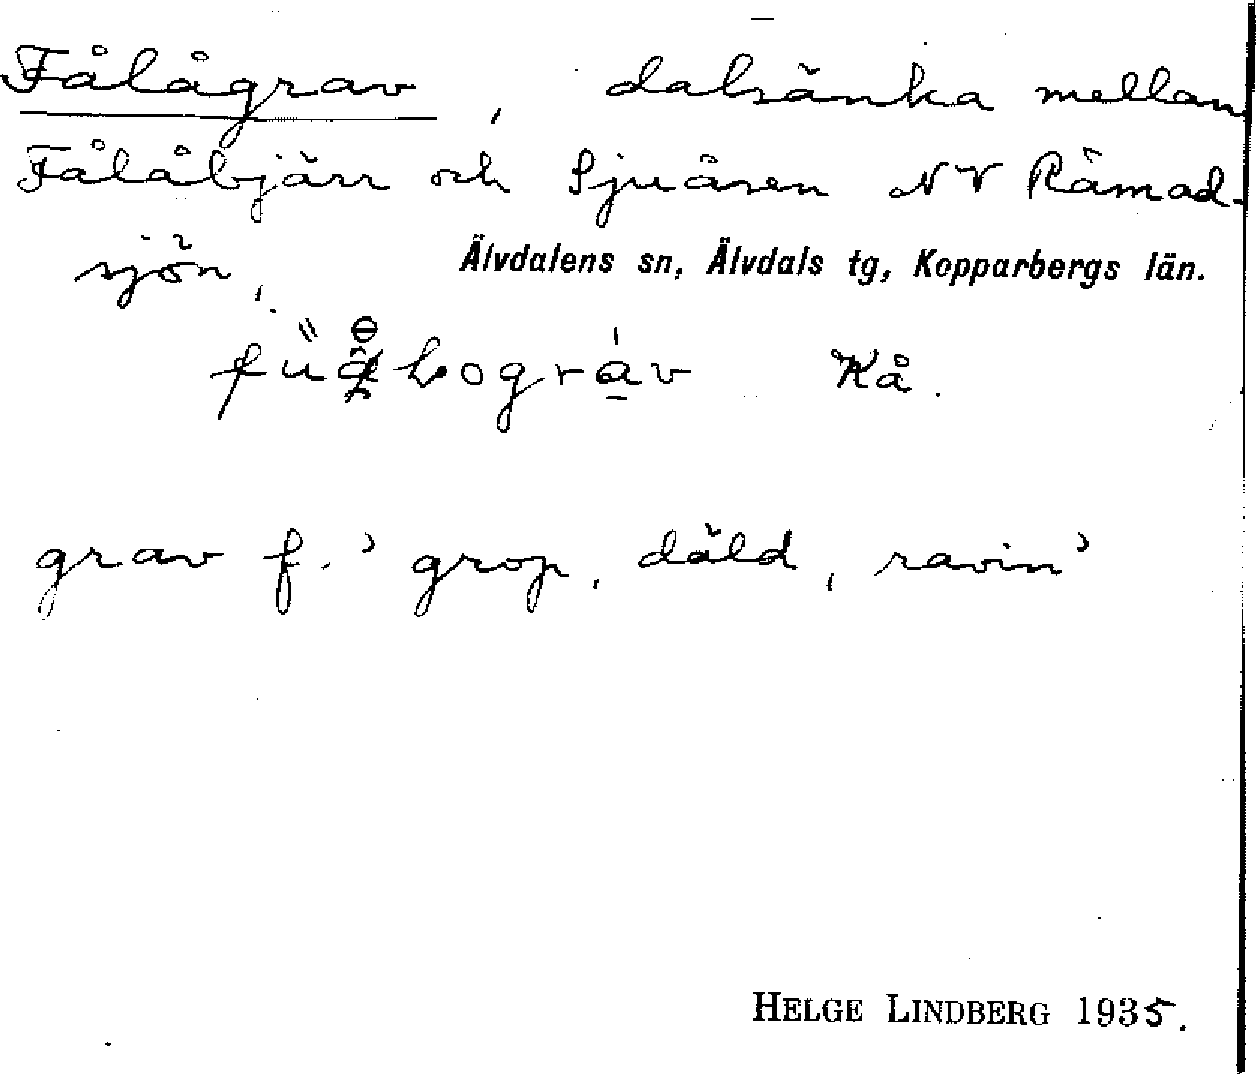 Fålågrav, dalsänka mellan
Fålåbjärr och Sjuåsen NV Rämad-
sjön.
Älvdalens sn, Älvdals tg, Kopparbergs län.
Kå.
grav f. 'grop, däld, ravin'
HELGE LINDBERG 1935.